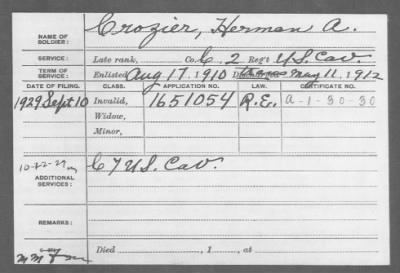 NAME OF SOLDIER: Crozier, Herman A.
SERVICE: Late rank, Co. C, 2 Reg't U.S. Cav.
TERM OF SERVICE: Enlisted Aug 17, 1910 May 11, 1912
DATE OF FILING. CLASS. APPLICATION NO. LAW. CERTIFICATE NO.
1929 Sept 10 Invalid, 1651054 R.E. A-1-30-30
Widow,
Minor,
ADDITIONAL SERVICES: C 7 U.S. Cav.
REMARKS:
Died , 1 , at